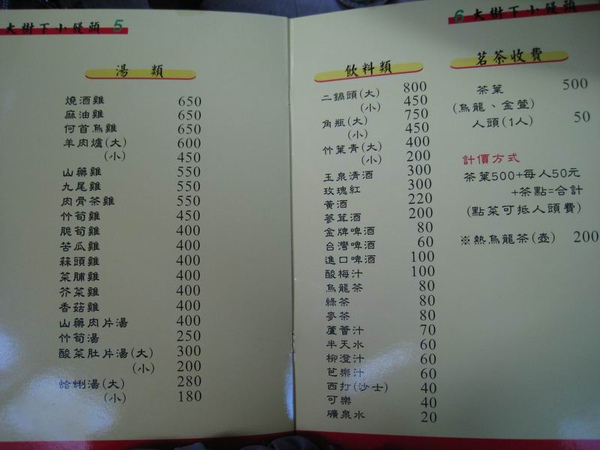 大樹下小饅頭 5
湯 類
燒酒雞 650
麻油雞 650
何首烏雞 650
羊肉爐(大) 600
(小) 450
山藥雞 550
九尾雞 550
肉骨茶雞 550
竹筍雞 450
脆筍雞 400
苦瓜雞 400
蒜頭雞 400
菜脯雞 400
芥菜雞 400
香菇雞 400
山藥肉片湯 400
竹筍湯 250
酸菜肚片湯(大) 300
(小) 200
蛤蜊湯(大) 280
(小) 180
6 大樹下小饅頭
飲料類
二鍋頭(大) 800
(小) 450
角瓶(大) 750
(小) 450
竹葉青(大) 400
(小) 200
玉泉清酒 300
玫瑰紅 300
黃酒 220
蔘茸酒 200
金牌啤酒 80
台灣啤酒 60
進口啤酒 100
酸梅汁 100
烏龍茶 80
綠茶 80
麥茶 80
蘆薈汁 70
半天水 60
柳澄汁 60
芭樂汁 60
西打(沙士) 40
可樂 40
礦泉水 20
茗茶收費
茶葉 500
(烏龍、金萱)
人頭(1人) 50
計價方式
茶葉500+每人50元
+茶點=合計
(點菜可抵人頭費)
※熱烏龍茶(壺) 200